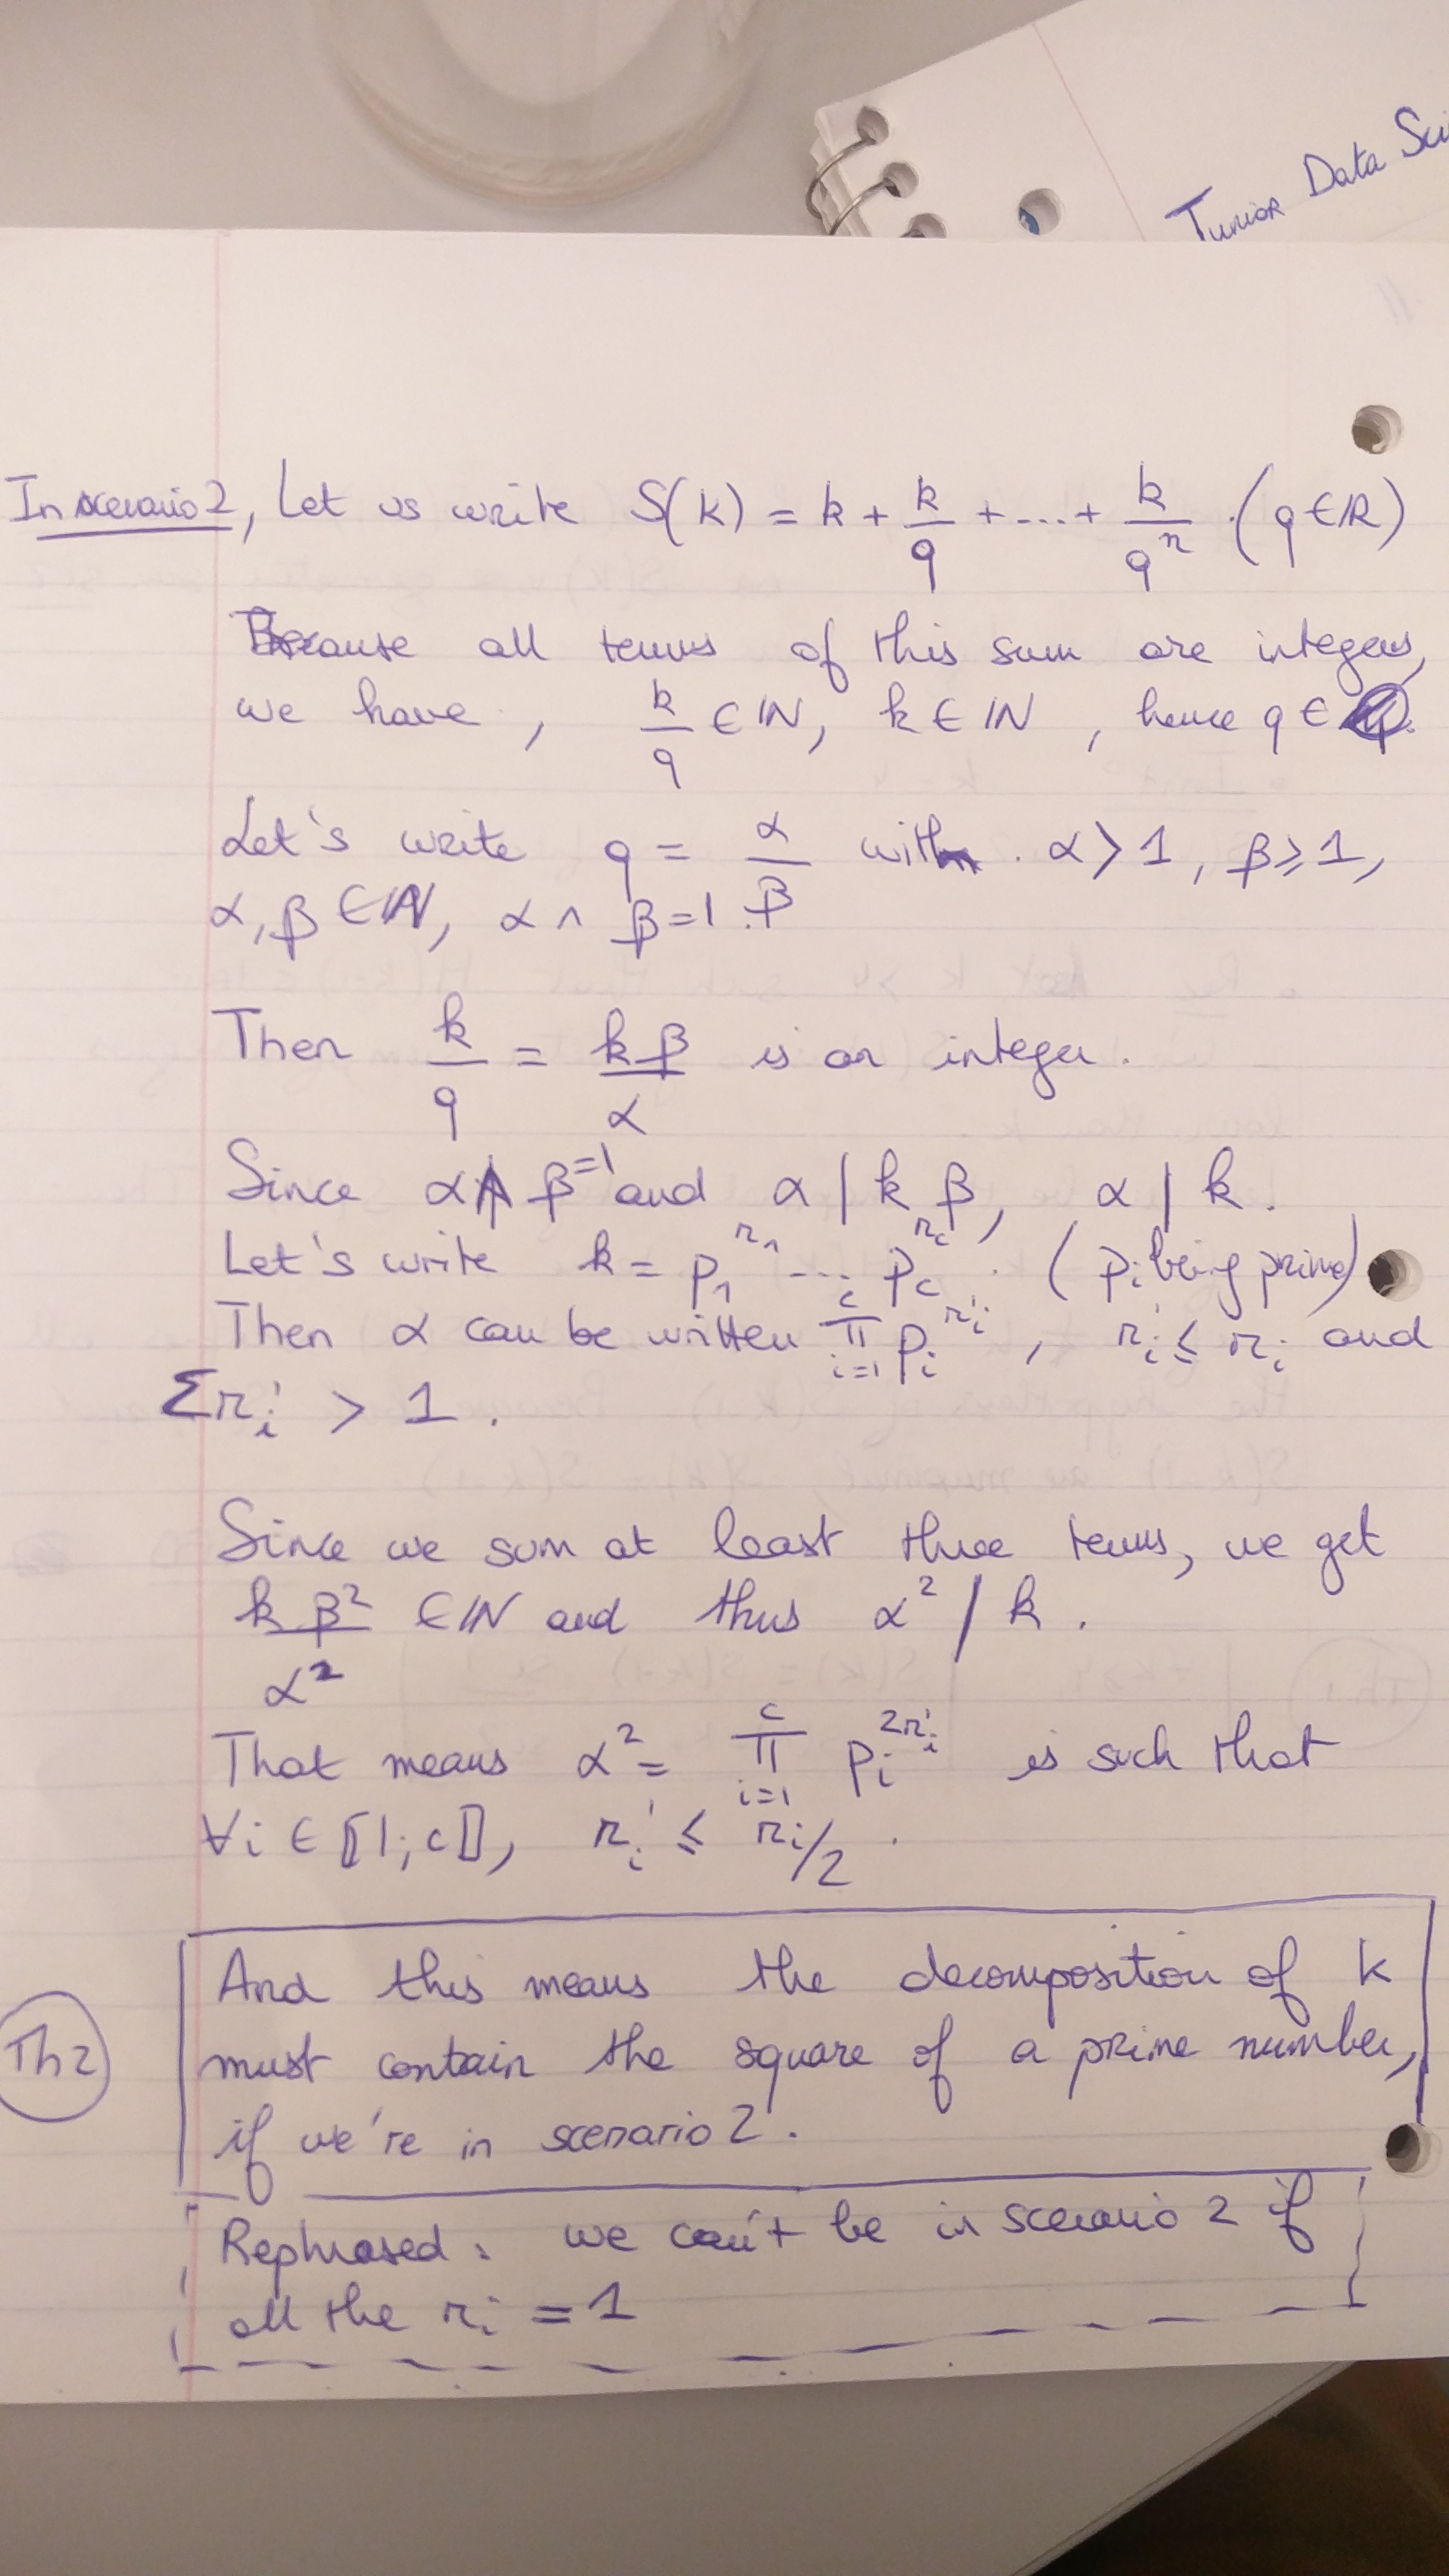 Junior Data Sci
In scenario 2, Let us write S(k) = k + k/q + ... + k/q^n . (q ∈ ℝ)
Because all terms of this sum are integers,
we have, k/q ∈ ℕ, k ∈ ℕ, hence q ∈ ℚ.
Let's write q = α/β with . α > 1, β ≥ 1,
α, β ∈ ℕ, α ∧ β = 1.
Then k/q = kβ/α is an integer.
Since α ∧ β = 1 and α | k β, α | k.
Let's write k = p_1^{r_1} ... p_c^{r_c} . (p_i being prime)
Then α can be written ∏_{i=1}^{c} p_i^{r'_i}, r'_i ≤ r_i and
Σ r'_i > 1.
Since we sum at least three terms, we get
kβ²/α² ∈ ℕ and thus α² | k.
That means α² = ∏_{i=1}^{c} p_i^{2r'_i} is such that
∀i ∈ ⟦1; c⟧, r'_i ≤ r_i/2.
Th2
And this means the decomposition of k
must contain the square of a prime number,
if we're in scenario 2.
Rephrased: we can't be in scenario 2 if
all the r_i = 1